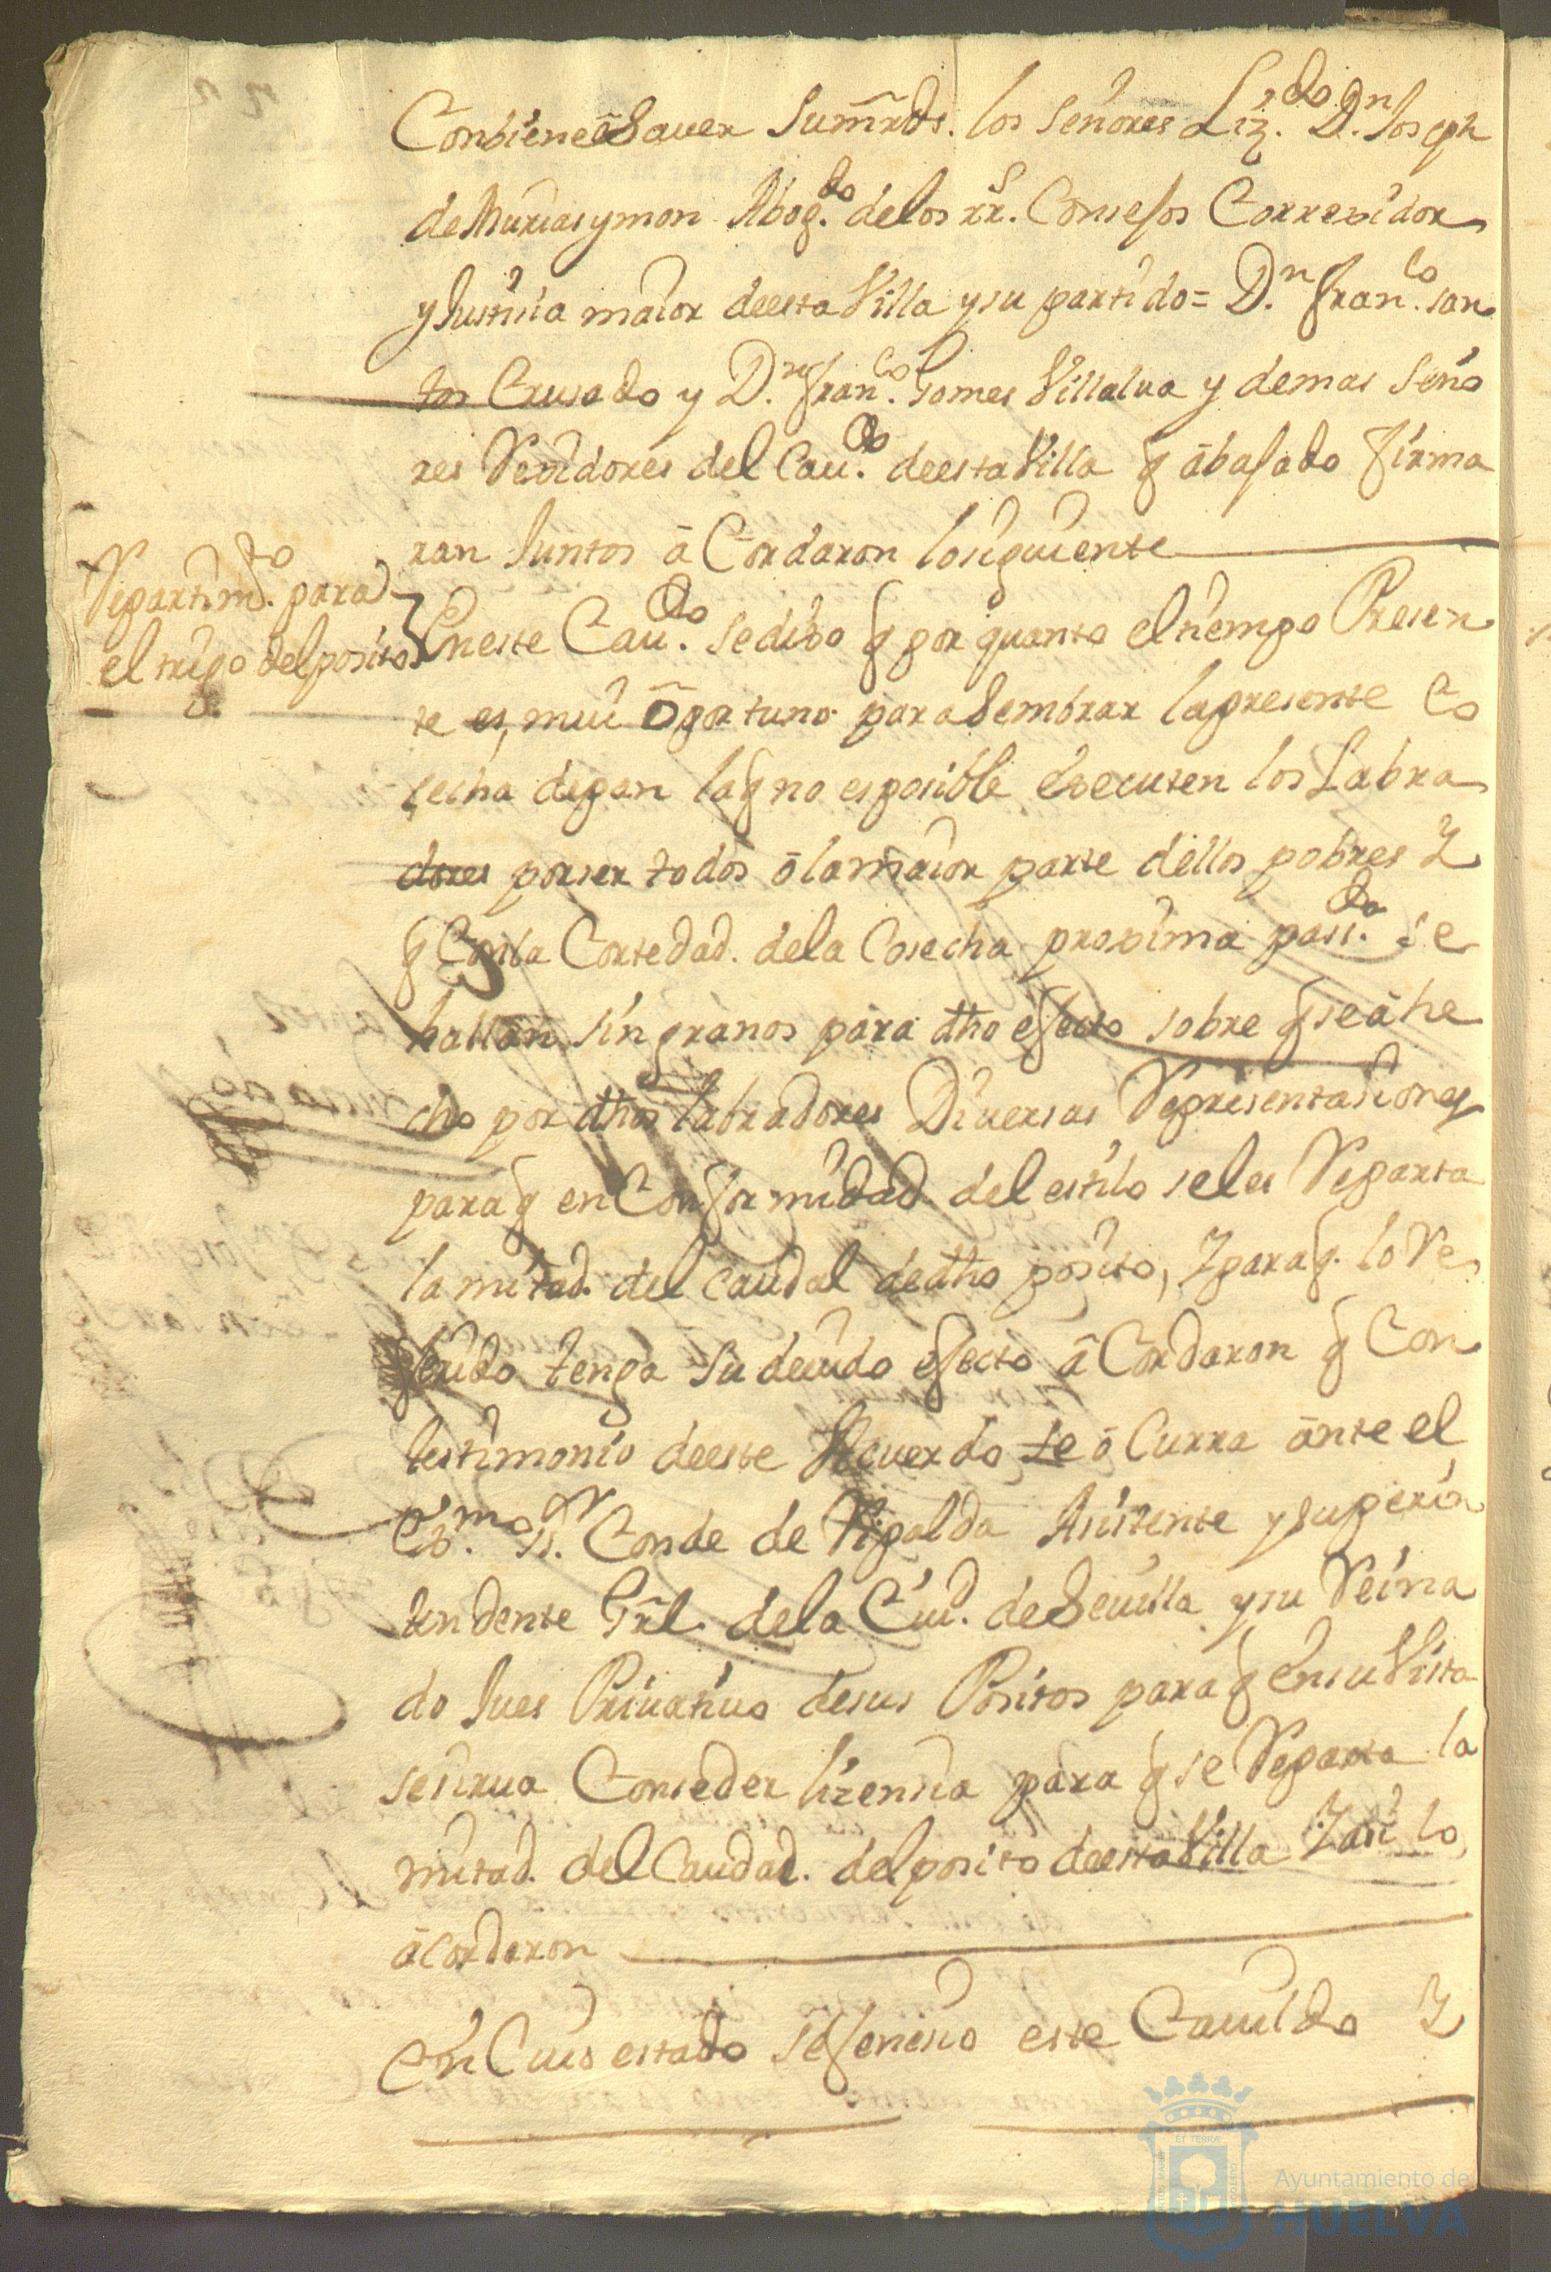 Conbiene â Saver Sumrds. los Señores Liz.do D.n Joseph
de Murias y mon Abog.do de los rr.s Consejos Correxidor
y Justicia maior de esta Villa y su partido = D.n Fran.co san
tos Crusado y D.n Fran.co Gomes Villalua y demas Seño
res Rexidores del Cau.do de esta Villa q âbajado firma
ran Juntos â Cordaron lo siguiente
Repartim.to para
el trigo del posito
En este Cau.do se dixo q por quanto el tiempo Presen
te es, mui ôportuno para Sembrar la presente Co
secha de pan la q no es posible executen los Labra
dores por ser todos ô la maior parte dellos pobres Y
q Con la Cortedad. de la Cosecha proxima pass.da se
hallan sin granos para dho efecto sobre q se â he
cho por dhos labradores Diuersas Representasiones
para q en Conformidad del estilo se les Reparta
la mitad. del caudal de dho posito, Y para q. lo Re
ferido tenga su deuido efecto â Cordaron q Con
testimonio de este Acuerdo se ô Curra ânte el
Ex.mo S.r Conde de Ripalda Asistente y superin
tendente Grl. de la Ciu.d de Seuilla y su Reina
do Jues Priuatiuo de sus Positos para q En su Vista
se sirua Conseder lizensia para q se Reparta la
mitad. del Caudal. del posito de esta Villa Y asi lo
âcordaron
En Cuio estado se fenesio este Cauildo Y
Ayuntamiento de
HUELVA